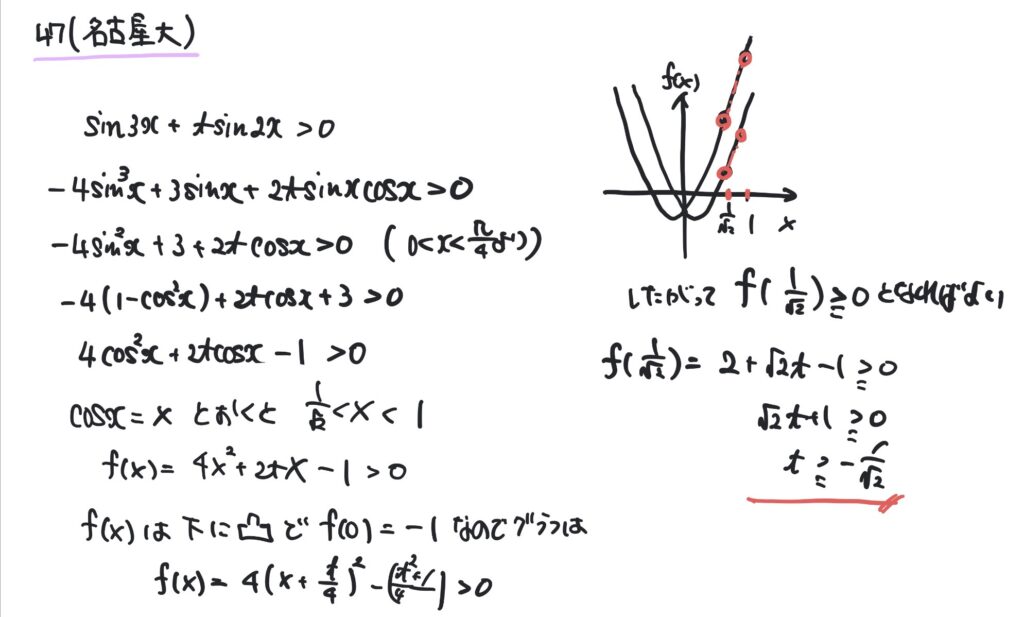 47(名古屋大)
sin3x + tsin2x > 0
-4sin³x + 3sinx + 2tsinxcosx > 0
-4sin²x + 3 + 2tcosx > 0 (0<x<π/4より)
-4(1-cos²x) + 2tcosx + 3 > 0
4cos²x + 2tcosx - 1 > 0
cosx = X とおくと 1/√2 < X < 1
f(x) = 4X² + 2tX - 1 > 0
f(x)は下に凸で f(0) = -1 なのでグラフは
f(x) = 4(x + t/4)² - (t²/4+1) > 0
f(x)
1/√2 1 X
したがって f(1/√2) ≧ 0 となればよい
f(1/√2) = 2 + √2t - 1 ≧ 0
√2t + 1 ≧ 0
t ≧ - 1/√2